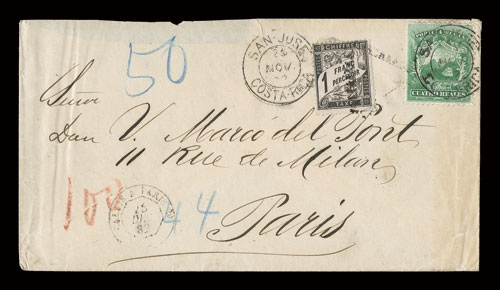 50
SAN-JOSE
29
NOV
82
COSTA-RICA
CHIFFRE
1 FRANC
À
PERCEVOIR
TAXE
CUATRO REALES
Señor
Don V. Marcó del Pont
11 Rue de Milan
Paris
100
44
25